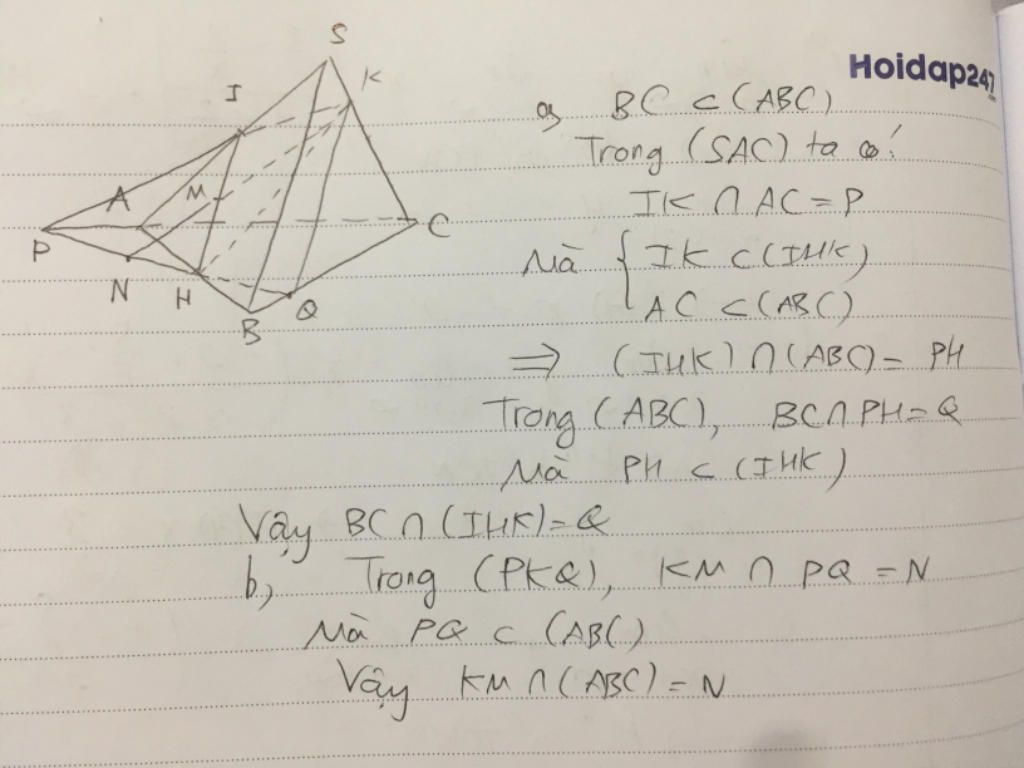 S
K
I
Hoidap247
A
M
P
C
N
H
B
Q
a, BC ⊂ (ABC)
Trong (SAC) ta có:
IK ∩ AC = P
Mà { IK ⊂ (IHK)
AC ⊂ (ABC)
⇒ (IHK) ∩ (ABC) = PH
Trong (ABC), BC ∩ PH = Q
Mà PH ⊂ (IHK)
Vậy BC ∩ (IHK) = Q
b, Trong (PKQ), KM ∩ PQ = N
Mà PQ ⊂ (ABC)
Vậy KM ∩ (ABC) = N